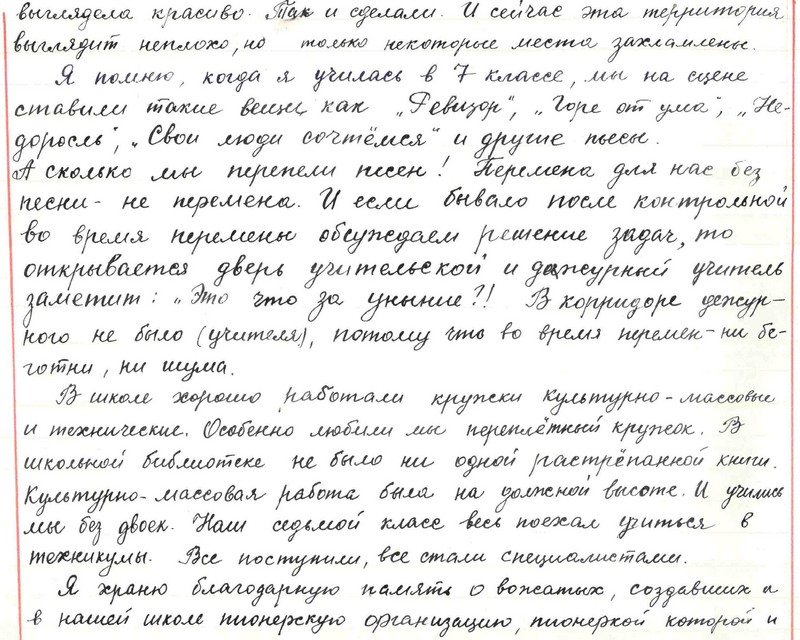 выглядела красиво. Так и сделали. И сейчас эта территория
выглядит неплохо, но только некоторые места захламлены.
Я помню, когда я училась в 7 классе, мы на сцене
ставили такие вещи, как „Ревизор", „Горе от ума", „Не-
доросль", „Свои люди сочтёмся" и другие пьесы.
А сколько мы перепели песен! Перемена для нас без
песни - не перемена. И если бывало после контрольной
во время перемены обсуждаем решение задач, то
открывается дверь учительской и дежурный учитель
заметит: „Это что за уныние?! В корридоре дежур-
ного не было (учителя), потому что во время перемен - ни бе-
готни, ни шума.
В школе хорошо работали кружки культурно-массовые
и технические. Особенно любили мы переплётный кружок. В
школьной библиотеке не было ни одной растрёпанной книги.
Культурно-массовая работа была на должной высоте. И учились
мы без двоек. Наш седьмой класс весь поехал учиться в
техникумы. Все поступили, все стали специалистами.
Я храню благодарную память о вожатых, создавших
в нашей школе пионерскую организацию, пионеркой которой и